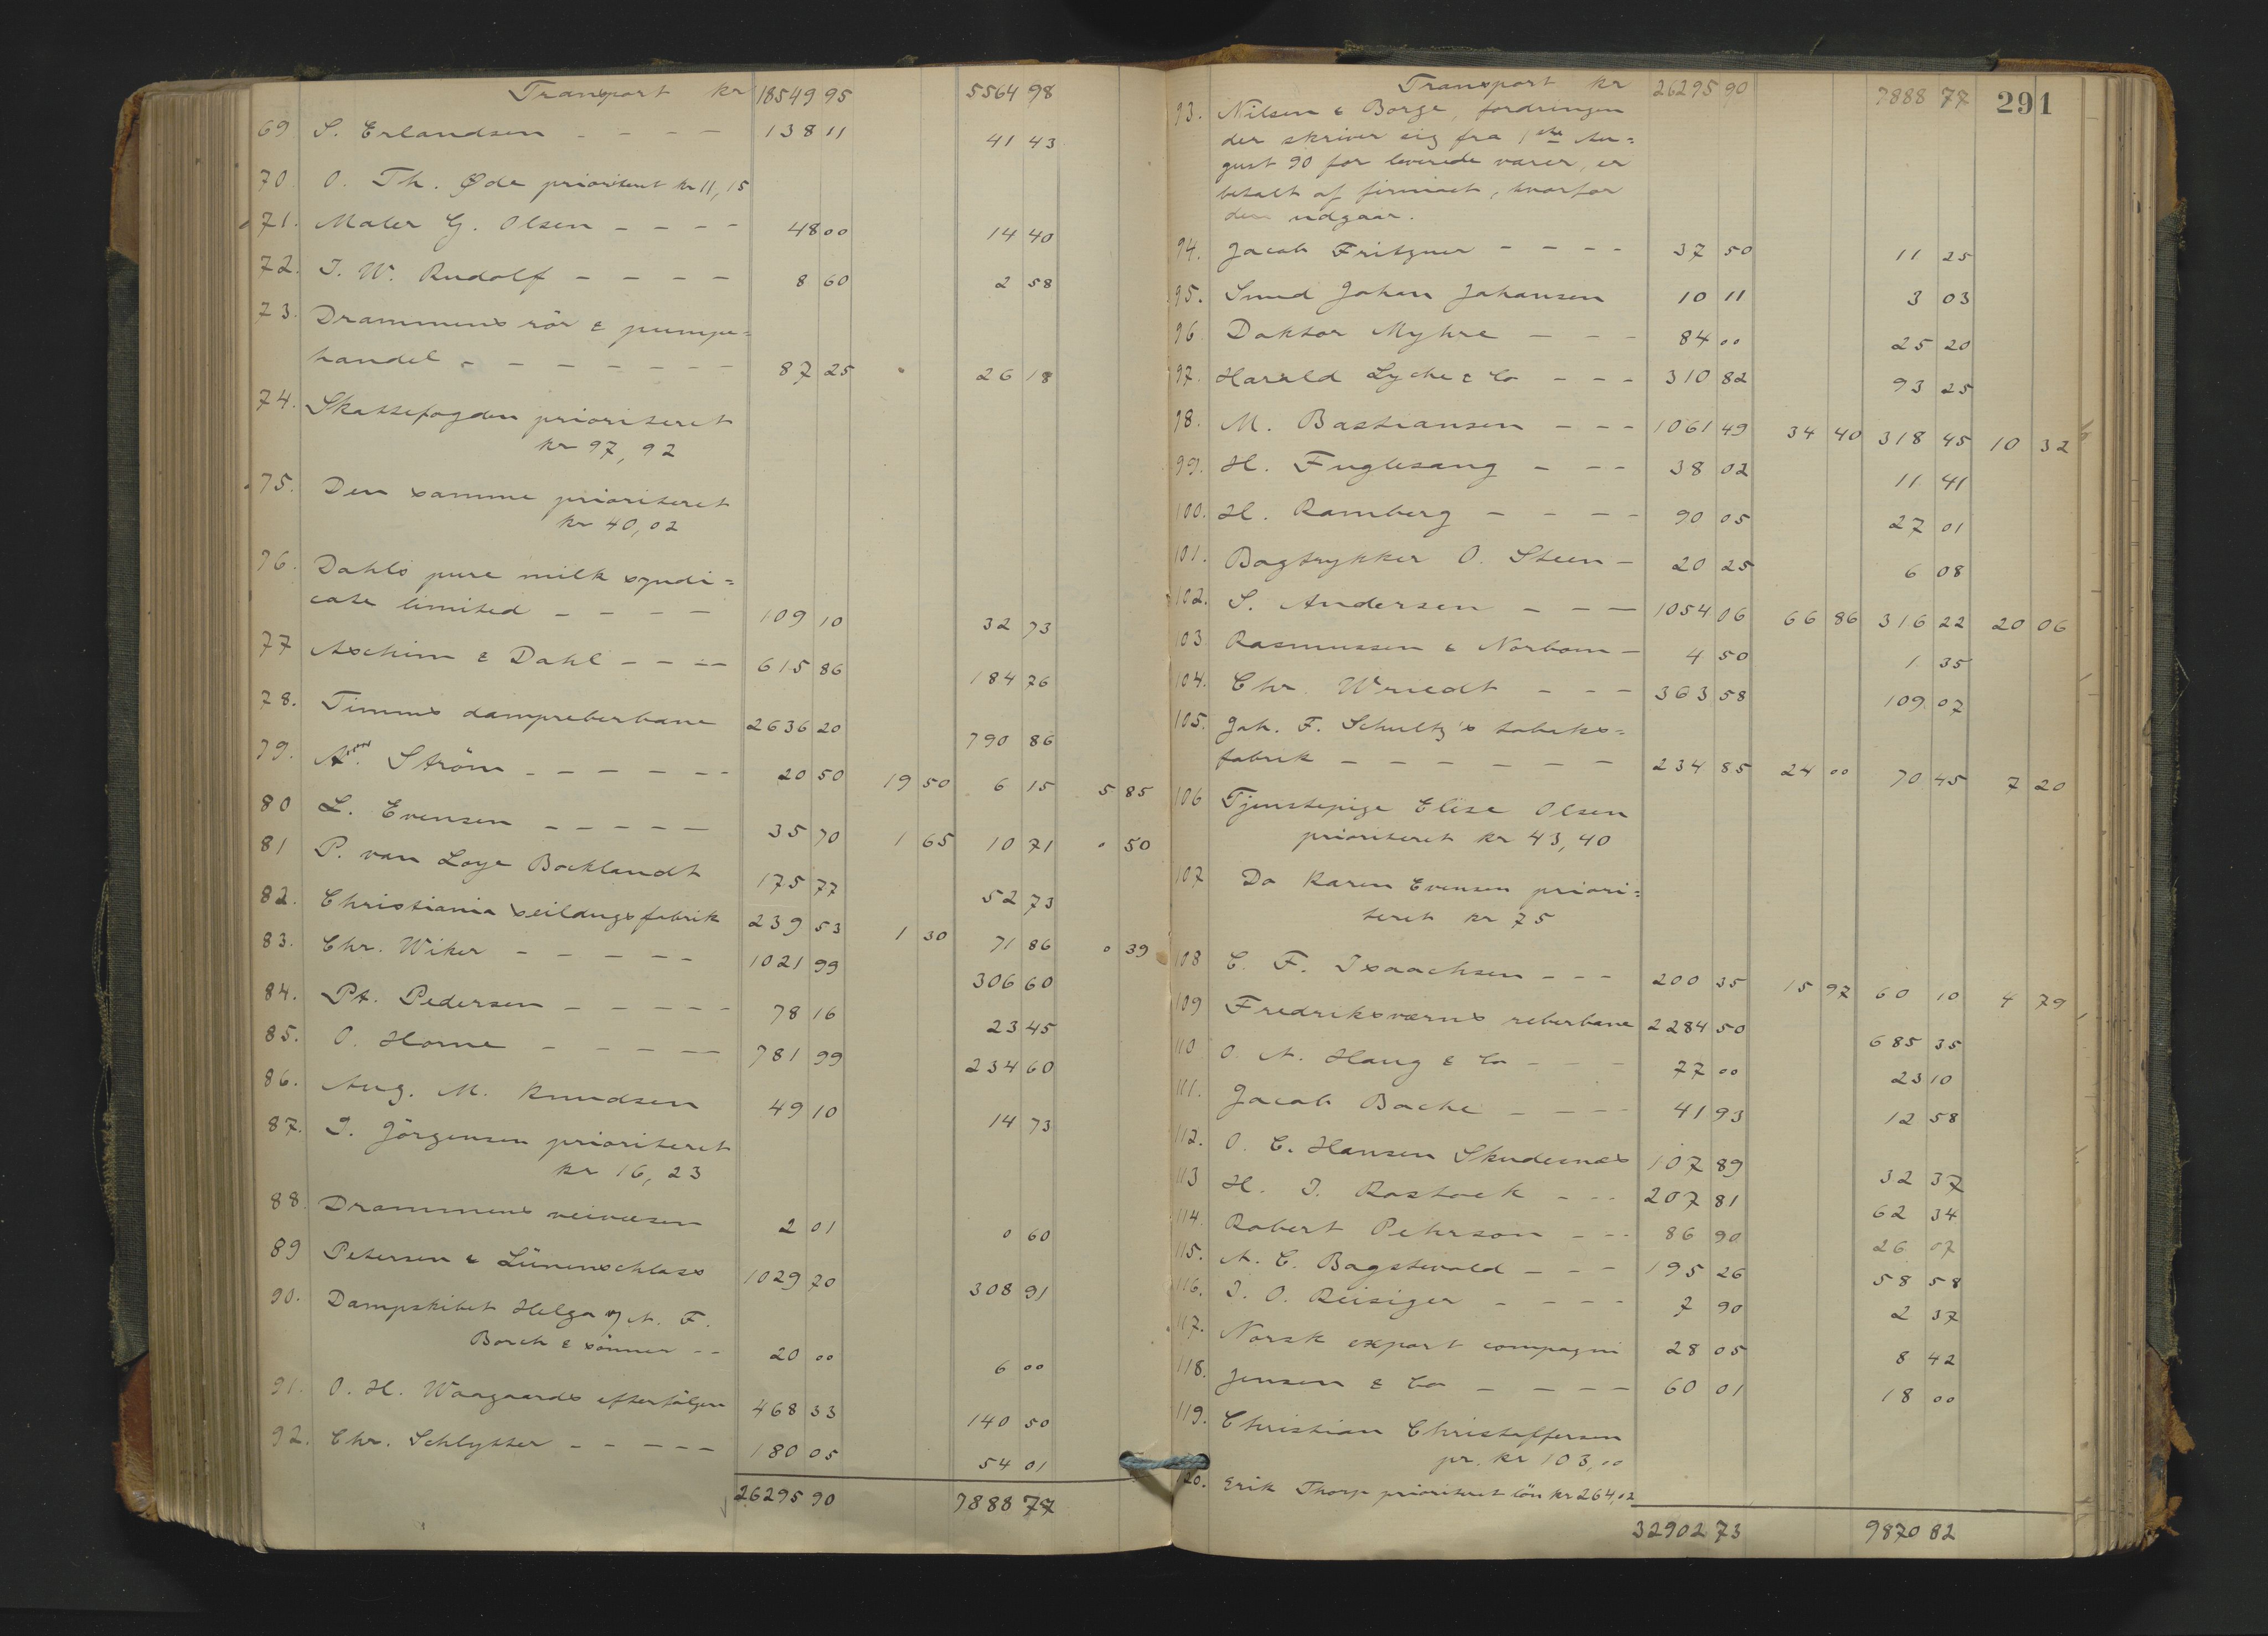 Transport kr 18549 95 5564 98
69. S. Erlandsen - - - - 138 11 41 43
70. O. Th. Øde prioriteret kr 11,15
71. Maler G. Olsen - - - - 48 00 14 40
72. I. W. Rudolf - - - - 8 60 2 58
73. Drammens rör & pumpe=
handel - - - - - - - 87 25 26 18
74. Skattefogden prioriteret
kr 97,92
75. Den samme prioriteret
kr 40,02
76. Dahls pure milk syndi=
cate limited - - - - 109 10 32 73
77 Aschim & Dahl - - - - 615 86 184 76
78. Timms dampreberbane 2636 20 790 86
79. Ström - - - - - - 20 50 19 50 6 15 5 85
80 L. Evensen - - - - - 35 70 1 65 10 71 0 50
81 P. van Loye Bocklandt 175 77 52 73
82. Christiania seildugsfabrik 239 53 1 30 71 86 0 39
83. Chr. Wiker - - - - - 1021 99 306 60
84. Pt. Pedersen - - - - - 78 16 23 45
85. O. Horne - - - - - 781 99 234 60
86. Aug. M. Knudsen 49 10 14 73
87. I. Jörgensen prioriteret
kr 16,23
88. Drammens veivæsen 2 01 0 60
89 Petersen & Lünenschloss 1029 70 308 91
90. Dampskibet Helga v/ A. F.
Borch & sönner - - 20 00 6 00
91. O. H. Waagaards efterfölger 468 33 140 50
92. Chr. Schlytter - - - - - 180 05 54 01
26295 90 7888 77
Transport kr 26295 90 7888 77 291
93. Nilsen & Borge, fordringen
der skriver sig fra 1ste Au=
gust 90 for leverede varer, er
betalt af firmaet, hvorfor
den udgaar.
94. Jacob Fritzner - - - - 37 50 11 25
95. Smed Johan Johansen 10 11 3 03
96 Doktor Myhre - - - 84 00 25 20
97. Harald Lyche & Co - - - 310 82 93 25
98. M. Bastiansen - - - 1061 49 34 40 318 45 10 32
99. H. Fuglesang - - - 38 02 11 41
100. H. Ramberg - - - - 90 05 27 01
101. Bogtrykker O. Steen - 20 25 6 08
102. S. Andersen - - - 1054 06 66 86 316 22 20 06
103 Rasmussen & Norbom - 4 50 1 35
104. Chr. Wriedt - - - 363 58 109 07
105. Joh. F. Schultz's tobaks=
fabrik - - - - - - 234 85 24 00 70 45 7 20
106 Tjenstepige Elise Olsen
prioriteret kr 43,40
107 Do Karen Evensen priori=
teret kr 75
108 C. F. Isaachsen - - - 200 35 15 97 60 10 4 79
109 Fredriksværns reberbane 2284 50 685 35
110 O. A. Haug & Co - - - 77 00 23 10
111. Jacob Bache - - - - 41 93 12 58
112. O. C. Hansen Skudesnæs 107 89 32 37
113 H. I. Rostock - - - 207 81 62 34
114. Robert Pehrson - - - 86 90 26 07
115. A. C. Bogstvold - - - 195 26 58 58
116. I. O. Reisiger - - - - 7 90 2 37
117. Norsk export compagni 28 05 8 42
118. Jensen & Co - - - - 60 01 18 00
119. Christian Christoffersen
pr. kr 103,00
120. Erik Thorp prioriteret lön kr 264,02
32902 73 9870 82